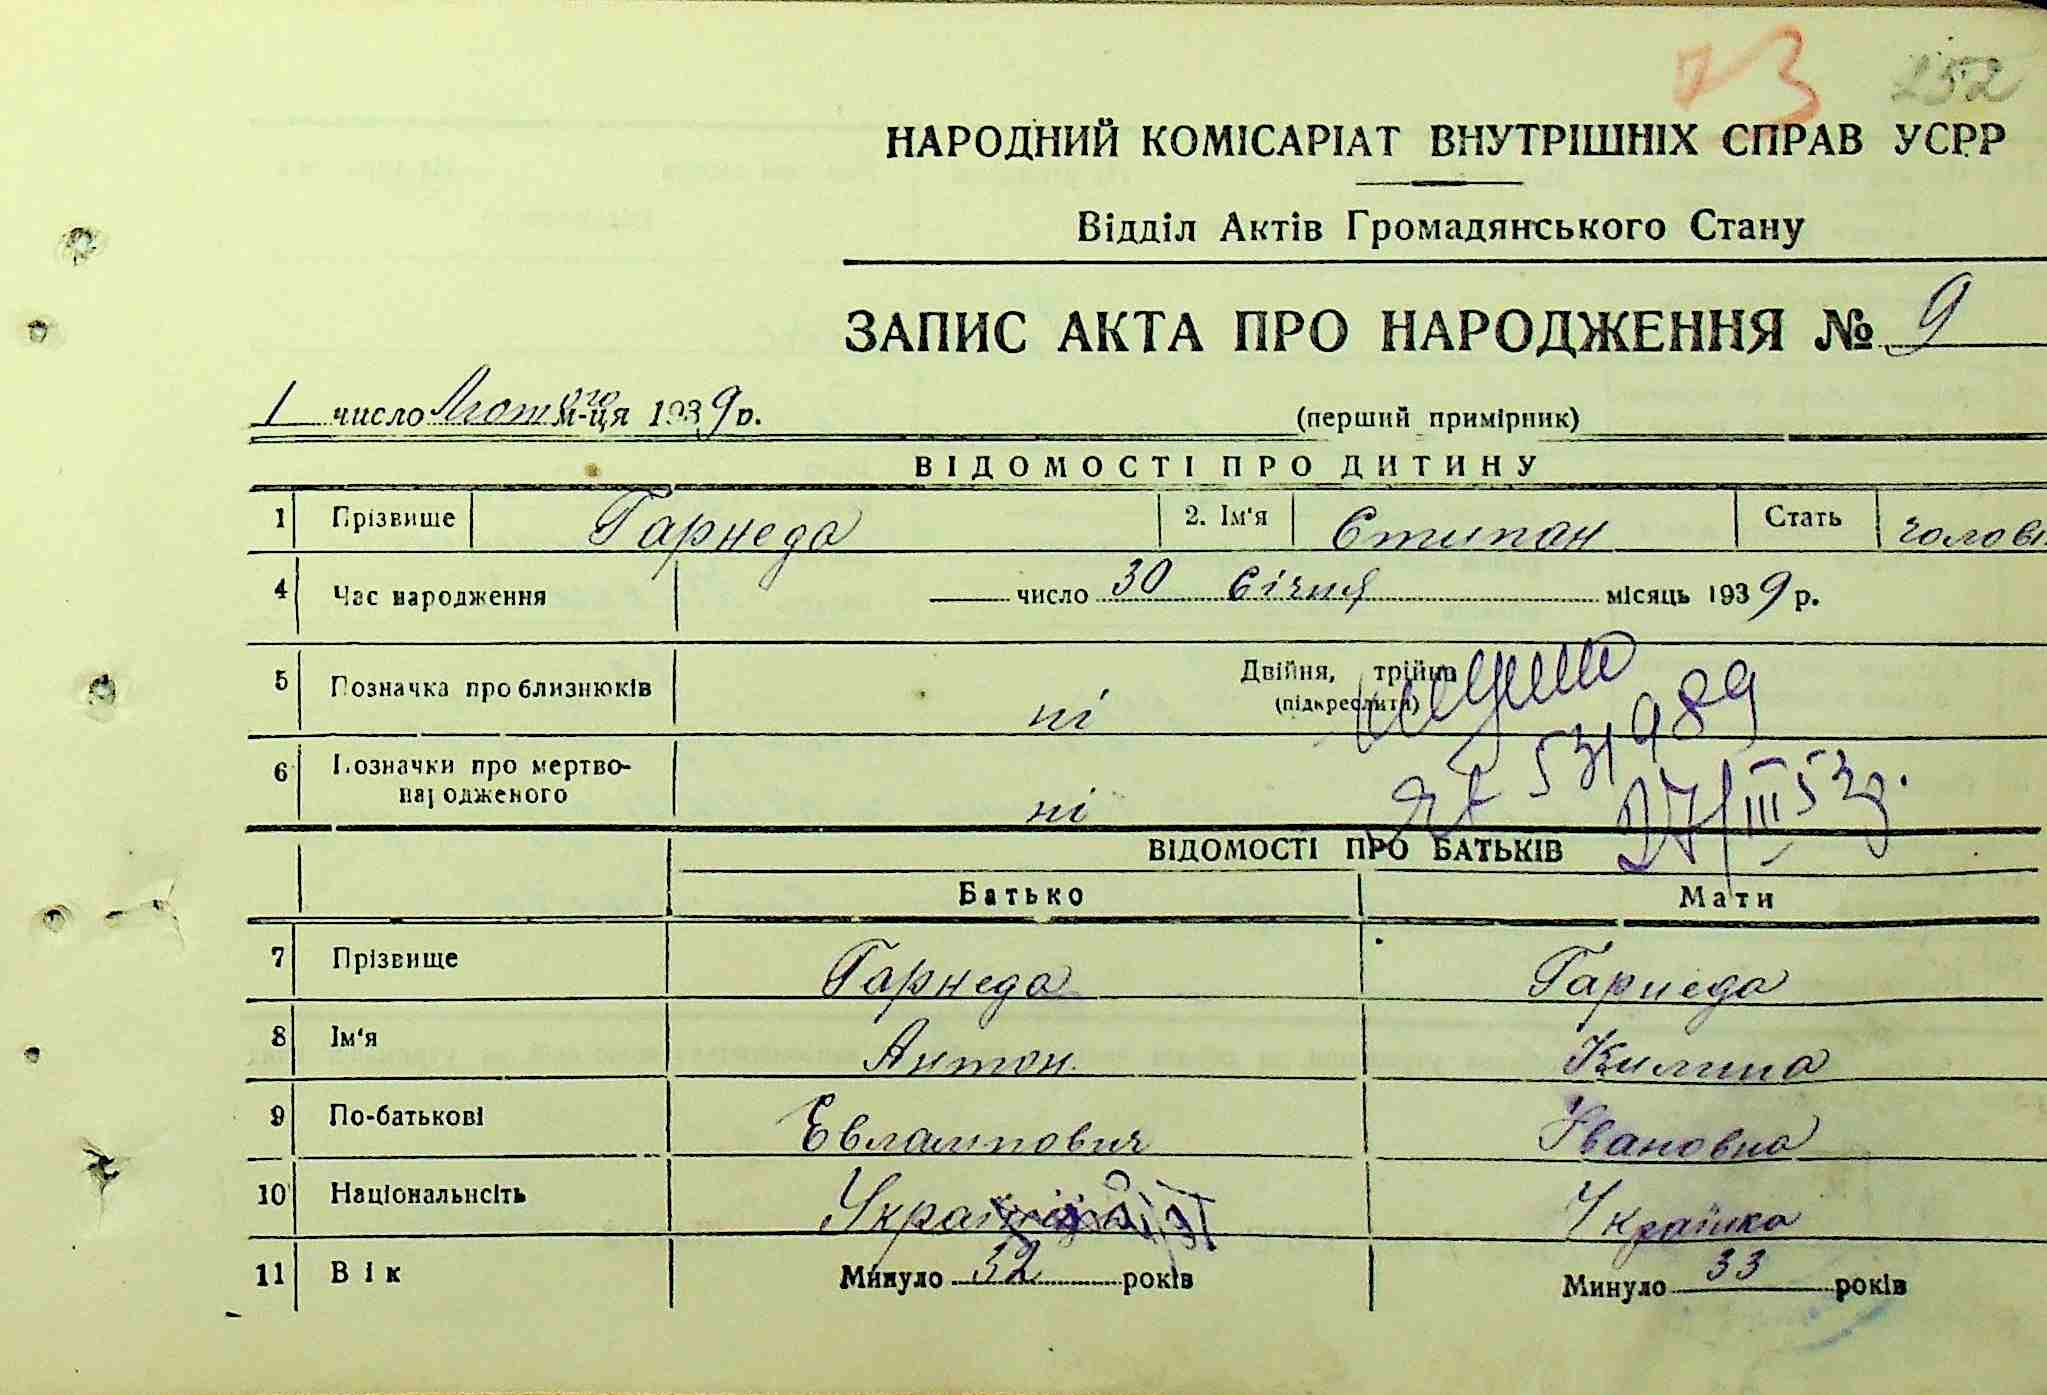 73 252
НАРОДНИЙ КОМІСАРІАТ ВНУТРІШНІХ СПРАВ УСРР
Відділ Актів Громадянського Стану
ЗАПИС АКТА ПРО НАРОДЖЕННЯ № 9
1 число Лютого м-ця 1939 р.
(перший примірник)
ВІДОМОСТІ ПРО ДИТИНУ
1 Прізвище Гарнеда 2. Ім'я Степан Стать чолові
4 Час народження число 30 Січня місяць 1939 р.
5 Позначка про близнюків ні Двійня, трійня
(підкреслити)
531989
6 Позначки про мертво-
народженого ні
27/III 53 г.
ВІДОМОСТІ ПРО БАТЬКІВ
Батько Мати
7 Прізвище Гарнеда Гарнеда
8 Ім'я Антон Килина
9 По-батькові Евлампович Івановна
10 Національнсіть Українець Українка
11 Вік Минуло 32 років Минуло 33 років